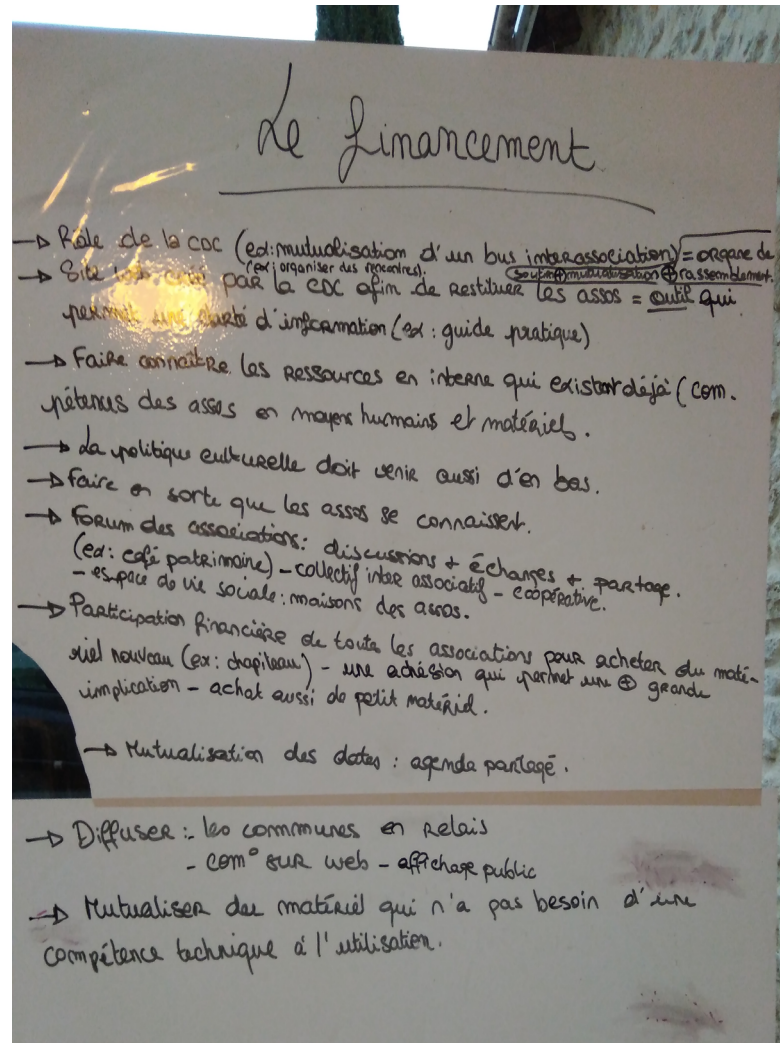 Le financement
→ Rôle de la CDC (ex: mutualisation d'un bus interassociation) = organe de
(ex: organiser des rencontres). soutien ⊕ mutualisation ⊕ rassemblement.
→ Site par la CDC afin de restituer les assos = outil qui
permet une clarté d'information (ex : guide pratique)
→ Faire connaître les ressources en interne qui existent déjà (com.
pétences des assos en moyens humains et matériels.
→ La politique culturelle doit venir aussi d'en bas.
→ Faire en sorte que les assos se connaissent.
→ Forum des associations: discussions + échanges + partage.
(ex: café patrimoine) - collectif inter associatif - coopérative.
- espace de vie sociale: maisons des assos.
→ Participation financière de toute les associations pour acheter du maté-
riel nouveau (ex: chapiteau) - une adhésion qui permet une ⊕ grande
implication - achat aussi de petit matériel.
→ Mutualisation des dates : agenda partagé.
→ Diffuser : - les communes en relais
- com° sur web - affichage public
→ Mutualiser du matériel qui n'a pas besoin d'une
compétence technique à l'utilisation.